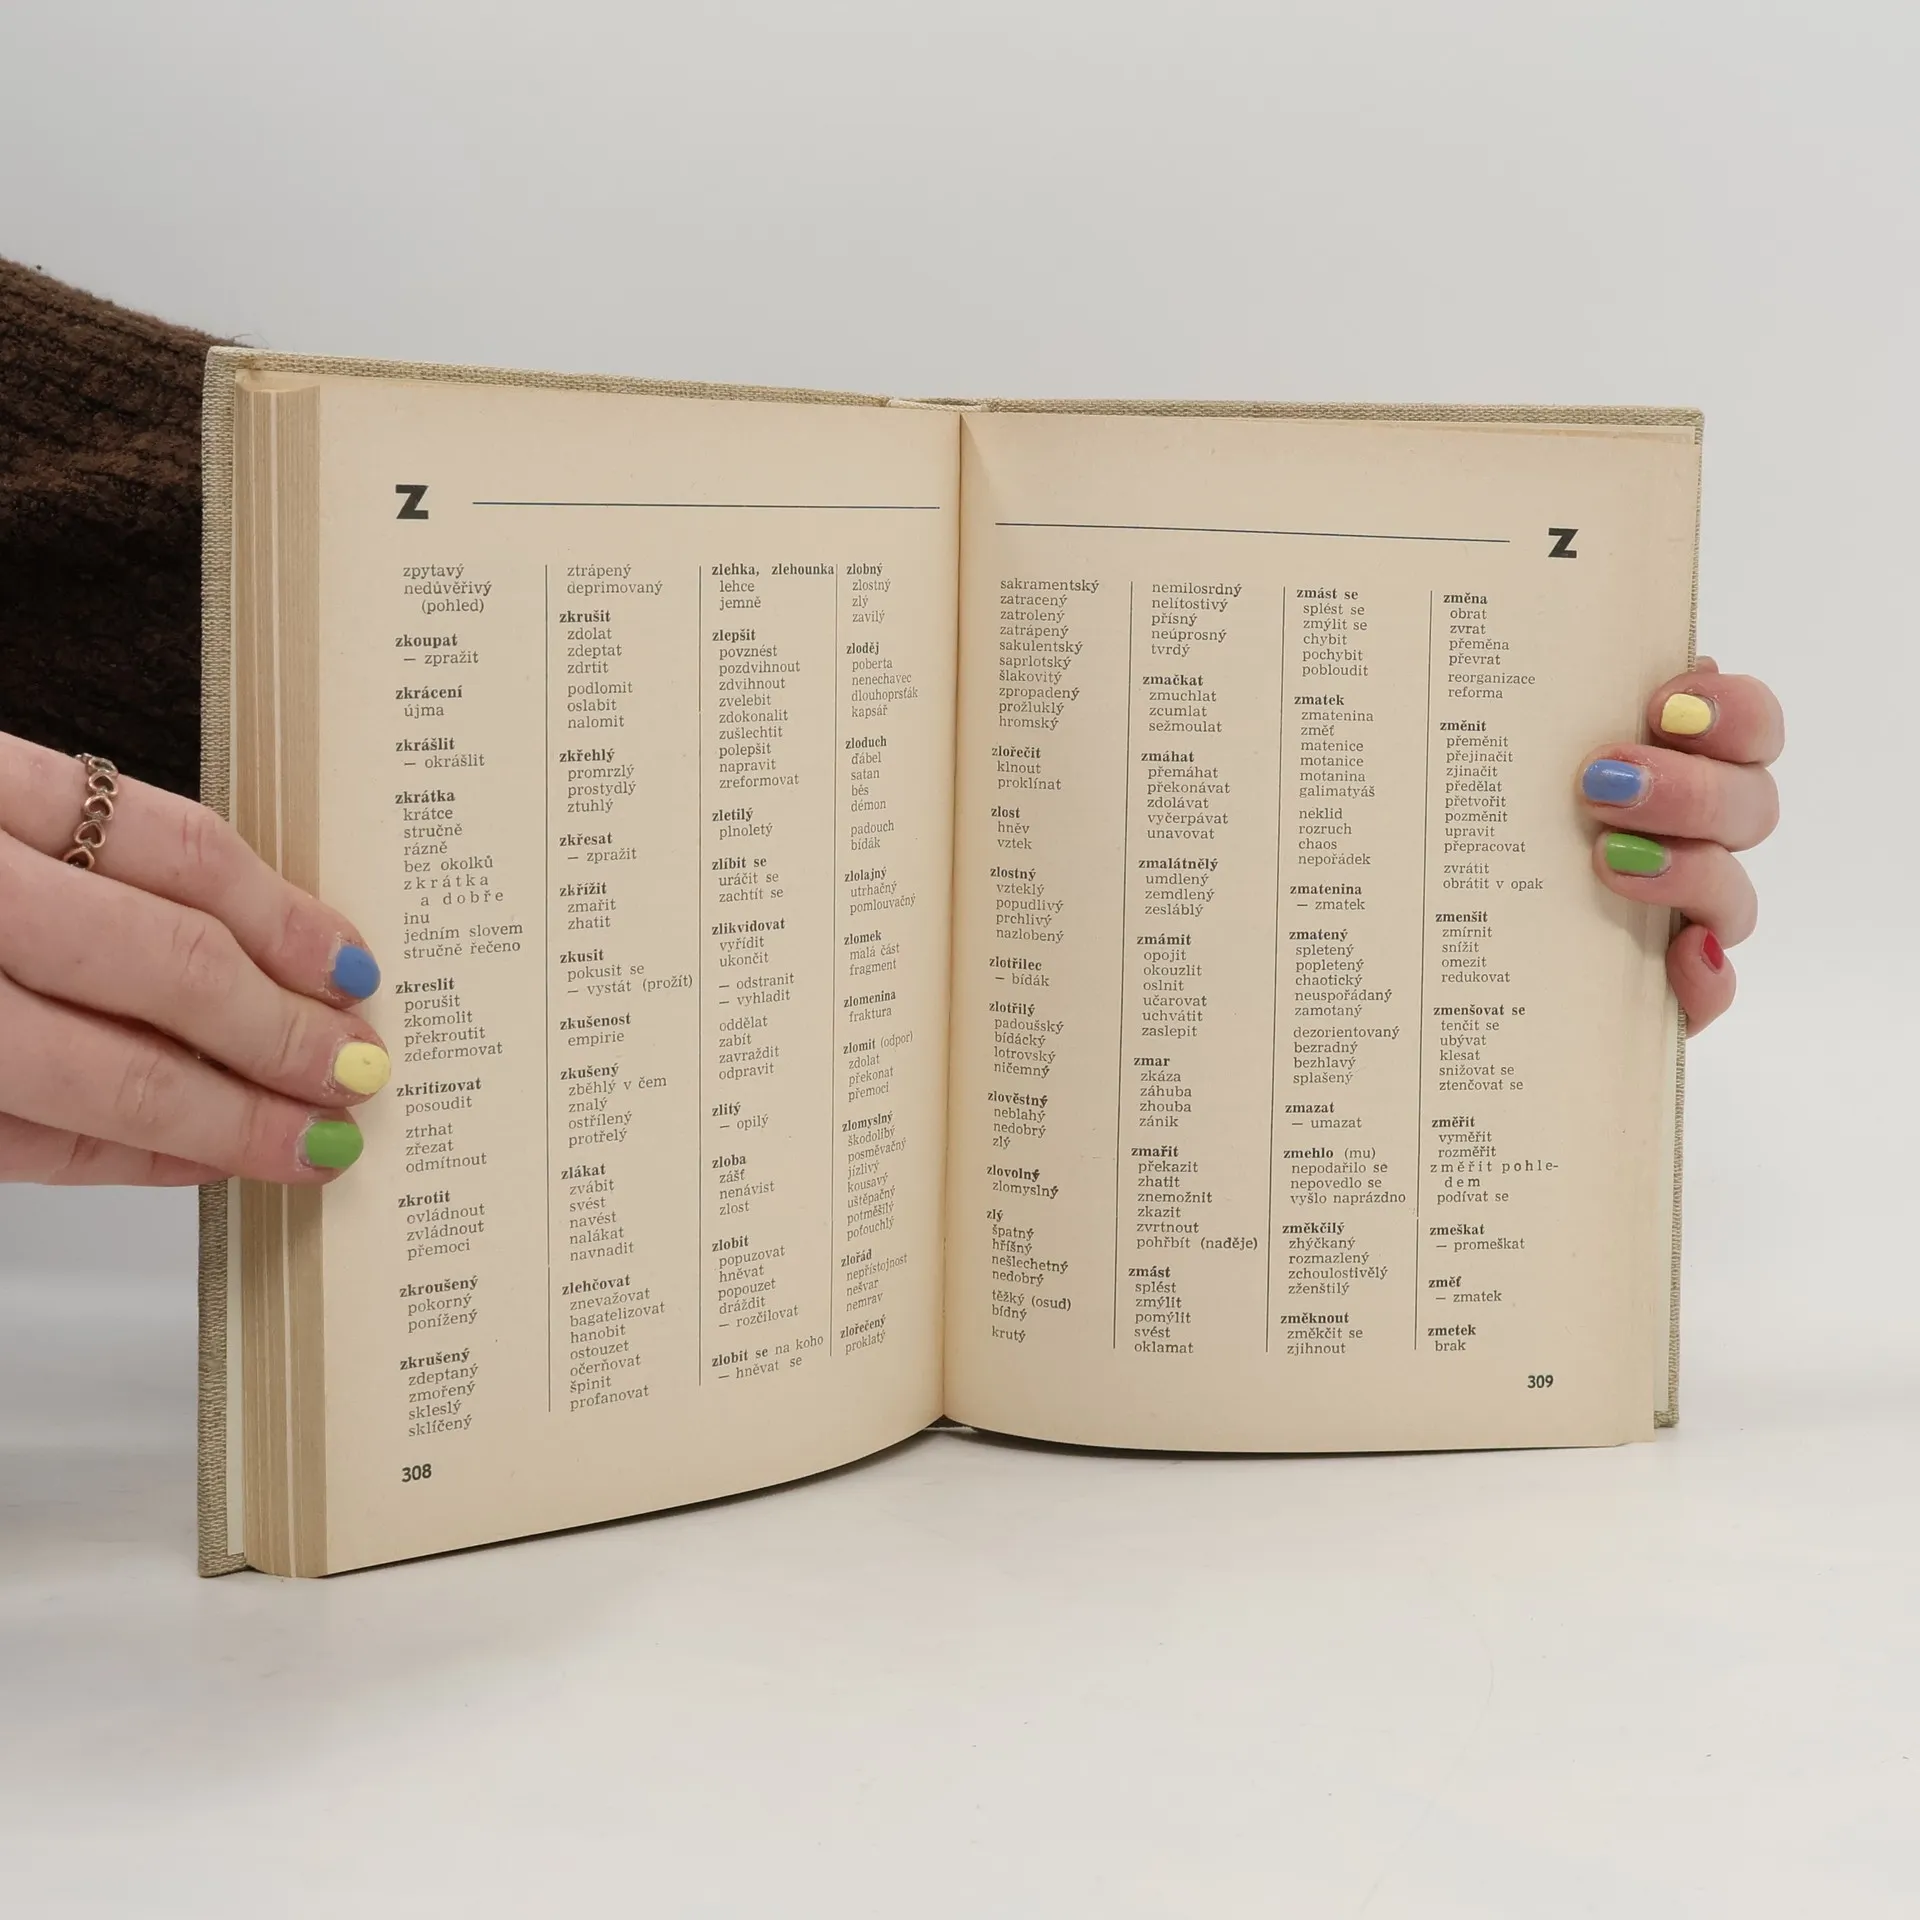 Z
zpytavý
nedůvěřivý
(pohled)
zkoupat
— zpražit
zkrácení
újma
zkrášlit
— okrášlit
zkrátka
krátce
stručně
rázně
bez okolků
zkrátka
a dobře
inu
jedním slovem
stručně řečeno
zkreslit
porušit
zkomolit
překroutit
zdeformovat
zkritizovat
posoudit
ztrhat
zřezat
odmítnout
zkrotit
ovládnout
zvládnout
přemoci
zkroušený
pokorný
ponížený
zkrušený
zdeptaný
zmořený
skleslý
sklíčený
ztrápený
deprimovaný
zkrušit
zdolat
zdeptat
zdrtit
podlomit
oslabit
nalomit
zkřehlý
promrzlý
prostydlý
ztuhlý
zkřesat
— zpražit
zkřížit
zmařit
zhatit
zkusit
pokusit se
— vystát (prožít)
zkušenost
empirie
zkušený
zběhlý v čem
znalý
ostřílený
protřelý
zlákat
zvábit
svést
navést
nalákat
navnadit
zlehčovat
znevažovat
bagatelizovat
hanobit
ostouzet
očerňovat
špinit
profanovat
zlehka, zlehounka
lehce
jemně
zlepšit
povznést
pozdvihnout
zdvihnout
zvelebit
zdokonalit
zušlechtit
polepšit
napravit
zreformovat
zletilý
plnoletý
zlíbit se
uráčit se
zachtít se
zlikvidovat
vyřídit
ukončit
— odstranit
— vyhladit
oddělat
zabít
zavraždit
odpravit
zlitý
— opilý
zloba
zášť
nenávist
zlost
zlobit
popuzovat
hněvat
popouzet
dráždit
— rozčilovat
zlobit se na koho
— hněvat se
zlobný
zlostný
zlý
zavilý
zloděj
poberta
nenechavec
dlouhoprsťák
kapsář
zloduch
ďábel
satan
běs
démon
padouch
bídák
zlolajný
utrhačný
pomlouvačný
zlomek
malá část
fragment
zlomenina
fraktura
zlomit (odpor)
zdolat
překonat
přemoci
zlomyslný
škodolibý
posměvačný
jízlivý
kousavý
uštěpačný
potměšilý
poťouchlý
zlořád
nepřístojnost
nešvar
nemrav
zlořečený
proklatý
308
Z
sakramentský
zatracený
zatrolený
zatrápený
sakulentský
saprlotský
šlakovitý
zpropadený
prožluklý
hromský
zlořečit
klnout
proklínat
zlost
hněv
vztek
zlostný
vzteklý
popudlivý
prchlivý
nazlobený
zlotřilec
— bídák
zlotřilý
padoušský
bídácký
lotrovský
ničemný
zlověstný
neblahý
nedobrý
zlý
zlovolný
zlomyslný
zlý
špatný
hříšný
nešlechetný
nedobrý
těžký (osud)
bídný
krutý
nemilosrdný
nelítostivý
přísný
neúprosný
tvrdý
zmačkat
zmuchlat
zcumlat
sežmoulat
zmáhat
přemáhat
překonávat
zdolávat
vyčerpávat
unavovat
zmalátnělý
umdlený
zemdlený
zesláblý
zmámit
opojit
okouzlit
oslnit
učarovat
uchvátit
zaslepit
zmar
zkáza
záhuba
zhouba
zánik
zmařit
překazit
zhatit
znemožnit
zkazit
zvrtnout
pohřbít (naděje)
zmást
splést
zmýlit
pomýlit
svést
oklamat
zmást se
splést se
zmýlit se
chybit
pochybit
pobloudit
zmatek
zmatenina
změť
matenice
motanice
motanina
galimatyáš
neklid
rozruch
chaos
nepořádek
zmatenina
— zmatek
zmatený
spletený
popletený
chaotický
neuspořádaný
zamotaný
dezorientovaný
bezradný
bezhlavý
splašený
zmazat
— umazat
zmehlo (mu)
nepodařilo se
nepovedlo se
vyšlo naprázdno
změkčilý
zhýčkaný
rozmazlený
zchoulostivělý
zženštilý
změknout
změkčit se
zjihnout
změna
obrat
zvrat
přeměna
převrat
reorganizace
reforma
změnit
přeměnit
přejinačit
zjinačit
předělat
přetvořit
pozměnit
upravit
přepracovat
zvrátit
obrátit v opak
zmenšit
zmírnit
snížit
omezit
redukovat
zmenšovat se
tenčit se
ubývat
klesat
snižovat se
ztenčovat se
změřit
vyměřit
rozměřit
změřit pohle-
dem
podívat se
zmeškat
— promeškat
změť
— zmatek
zmetek
brak
309